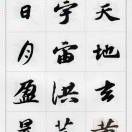 天地玄黄
宇宙洪荒
日月盈昃